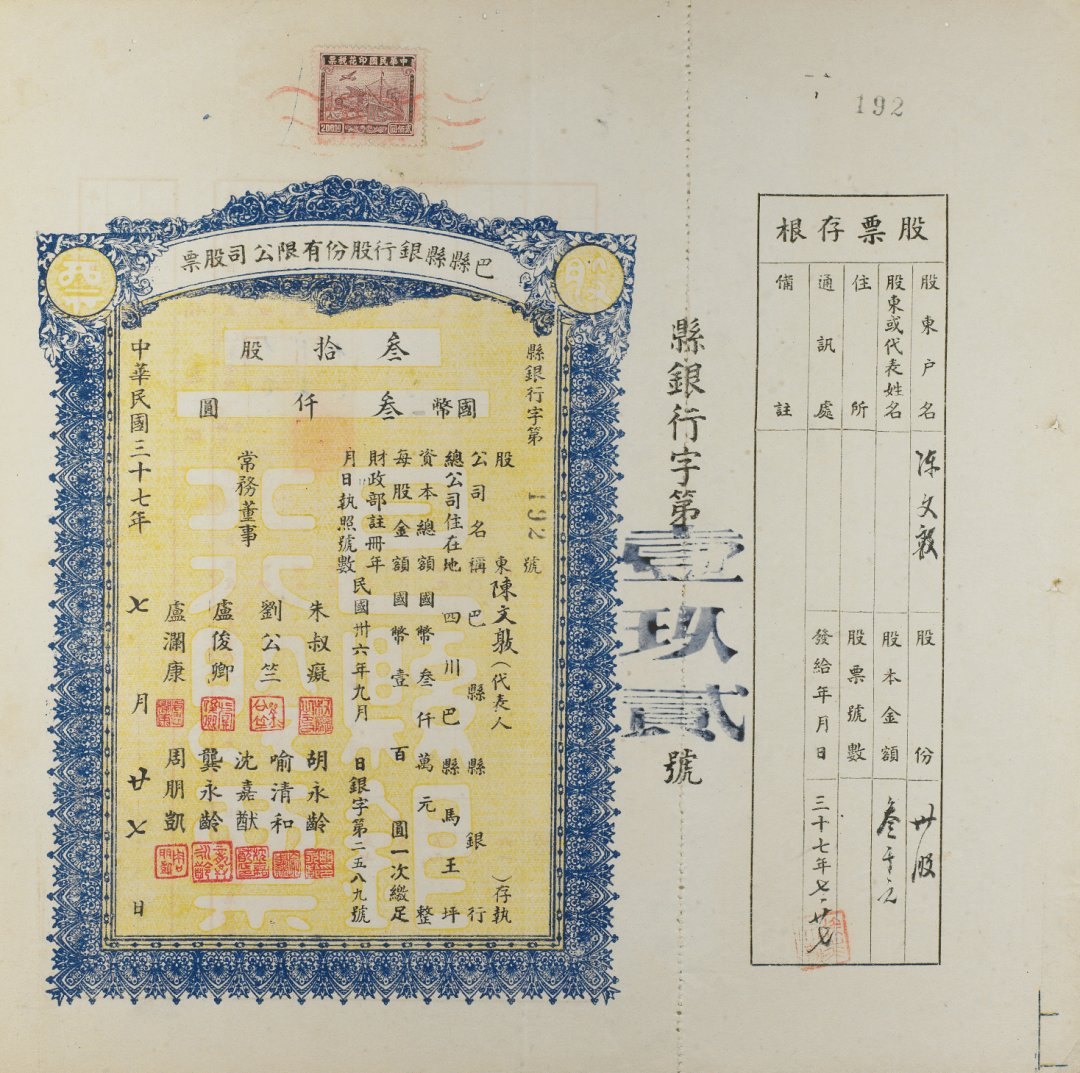 中華民國印花稅票
200圓
貳佰圓
192
巴縣縣銀行股份有限公司股票
股
票
叁拾股
國幣叁仟圓
縣銀行字第192號
股東陳文毅(代表人)存執
公司名稱巴縣縣銀行
總公司住在地四川巴縣馬王坪
資本總額國幣叁仟萬元整
每股金額國幣壹百圓一次繳足
財政部註冊年月日執照號數民國卅六年九月日銀字第二五八九號
常務董事
朱叔癡
劉公竺
盧俊卿
盧瀾康
胡永齡
喻清和
沈嘉猷
龔永齡
周朋凱
中華民國三十七年七月廿七日
縣銀行字第壹玖貳號
股票存根
股東戶名陳文毅
股份卅股
股東或代表姓名
股本金額叁千元
住所
股票號數
通訊處
發給年月日三十七年七·廿七
備註